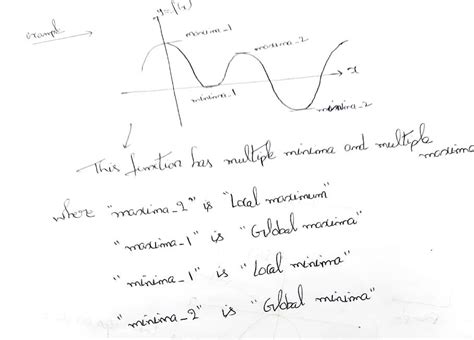 y=f(x)
example
maxima_1
maxima_2
x
minima_1
minima_2
This function has multiple minima and multiple maxima
where "maxima_2" is "Local maximum"
"maxima_1" is "Global maxima"
"minima_1" is "Local minima"
"minima_2" is "Global minima"